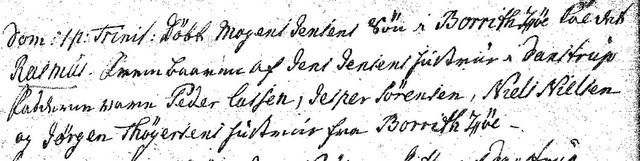 Dom: 1 p: Trinit: Döbt Mogens Jensens Sön i Borrith Høe kaldet
Rasmus. Frembaaren af Jens Jensens Hustrue i Danstrup
Fadderne vare Peder Lassen, Jesper Sörensen, Niels Nielsen
og Jørgen Thögersens Hustrue fra Borrith Høe –